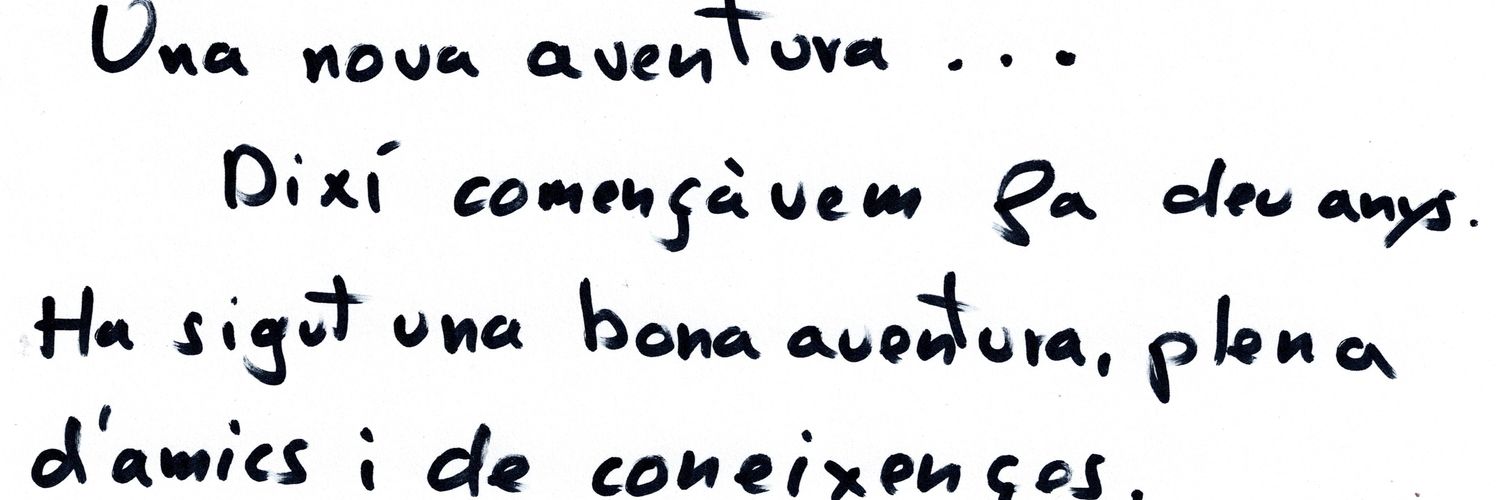 Una nova aventura ...
Dixí començàvem fa deu anys.
Ha sigut una bona aventura, plena
d'amics i de coneixenços.